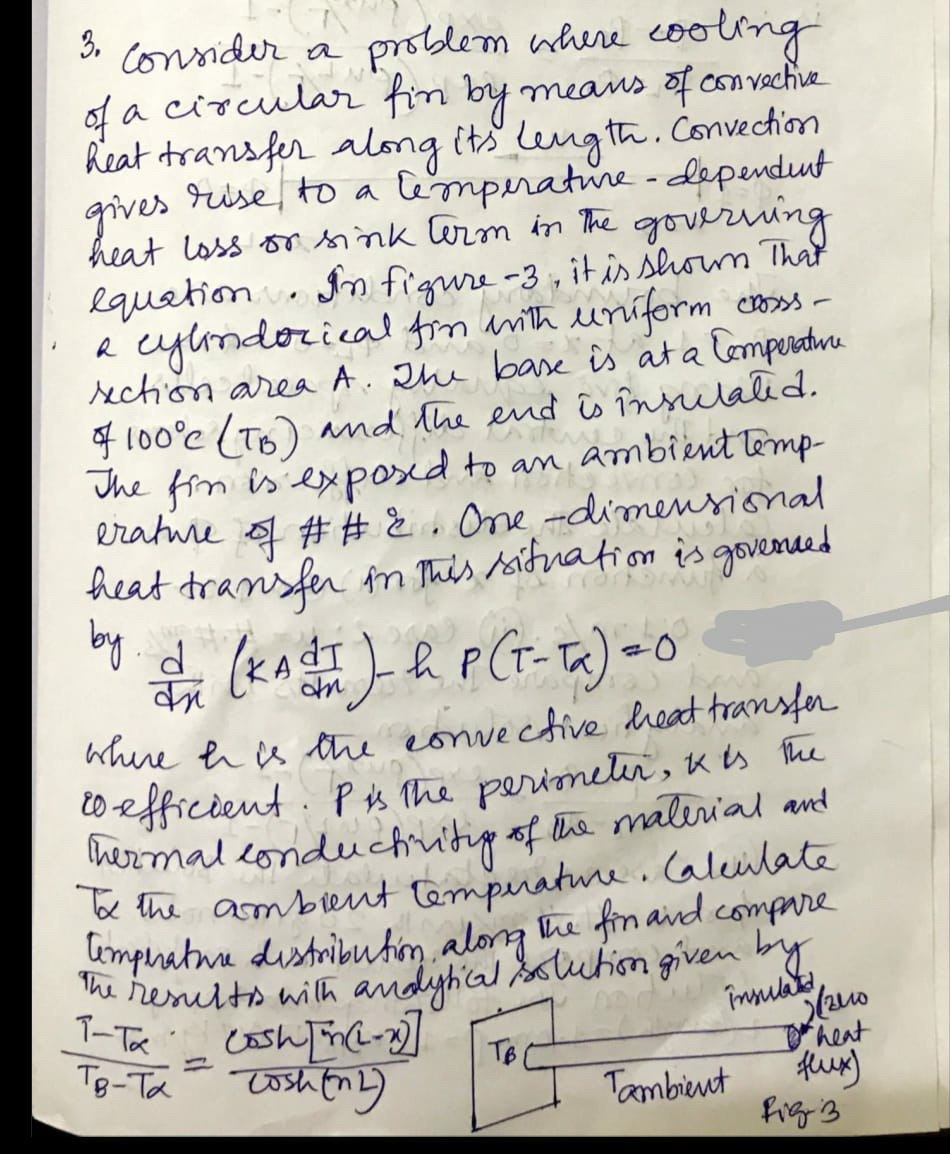 3. Consider a problem where cooling
of a circular fin by means of convective
heat transfer along its length. Convection
gives rise to a temperature - dependent
heat loss or sink term in the governing
equation. In figure -3, it is shown that
a cylinderical fin with uniform cross -
section area A. The base is at a temperature
of 100°c (TB) and the end is insulated.
The fin is exposed to an ambient temp-
erature of # # . One -dimensional
heat transfer in this situation is governed
by d/dx (KA dT/dx) - h P(T-Tα) = 0
where h is the convective heat transfer
co-efficient. P is the perimeter, K is the
thermal conductivity of the material and
Tα the ambient temperature. Calculate
temperature distribution along the fin and compare
the results with analytical solution given by
T-Tα / TB-Tα = cosh[n(L-x)] / cosh(nL)
insulated
(zero
heat
flux)
TB
Tambient
Fig-3